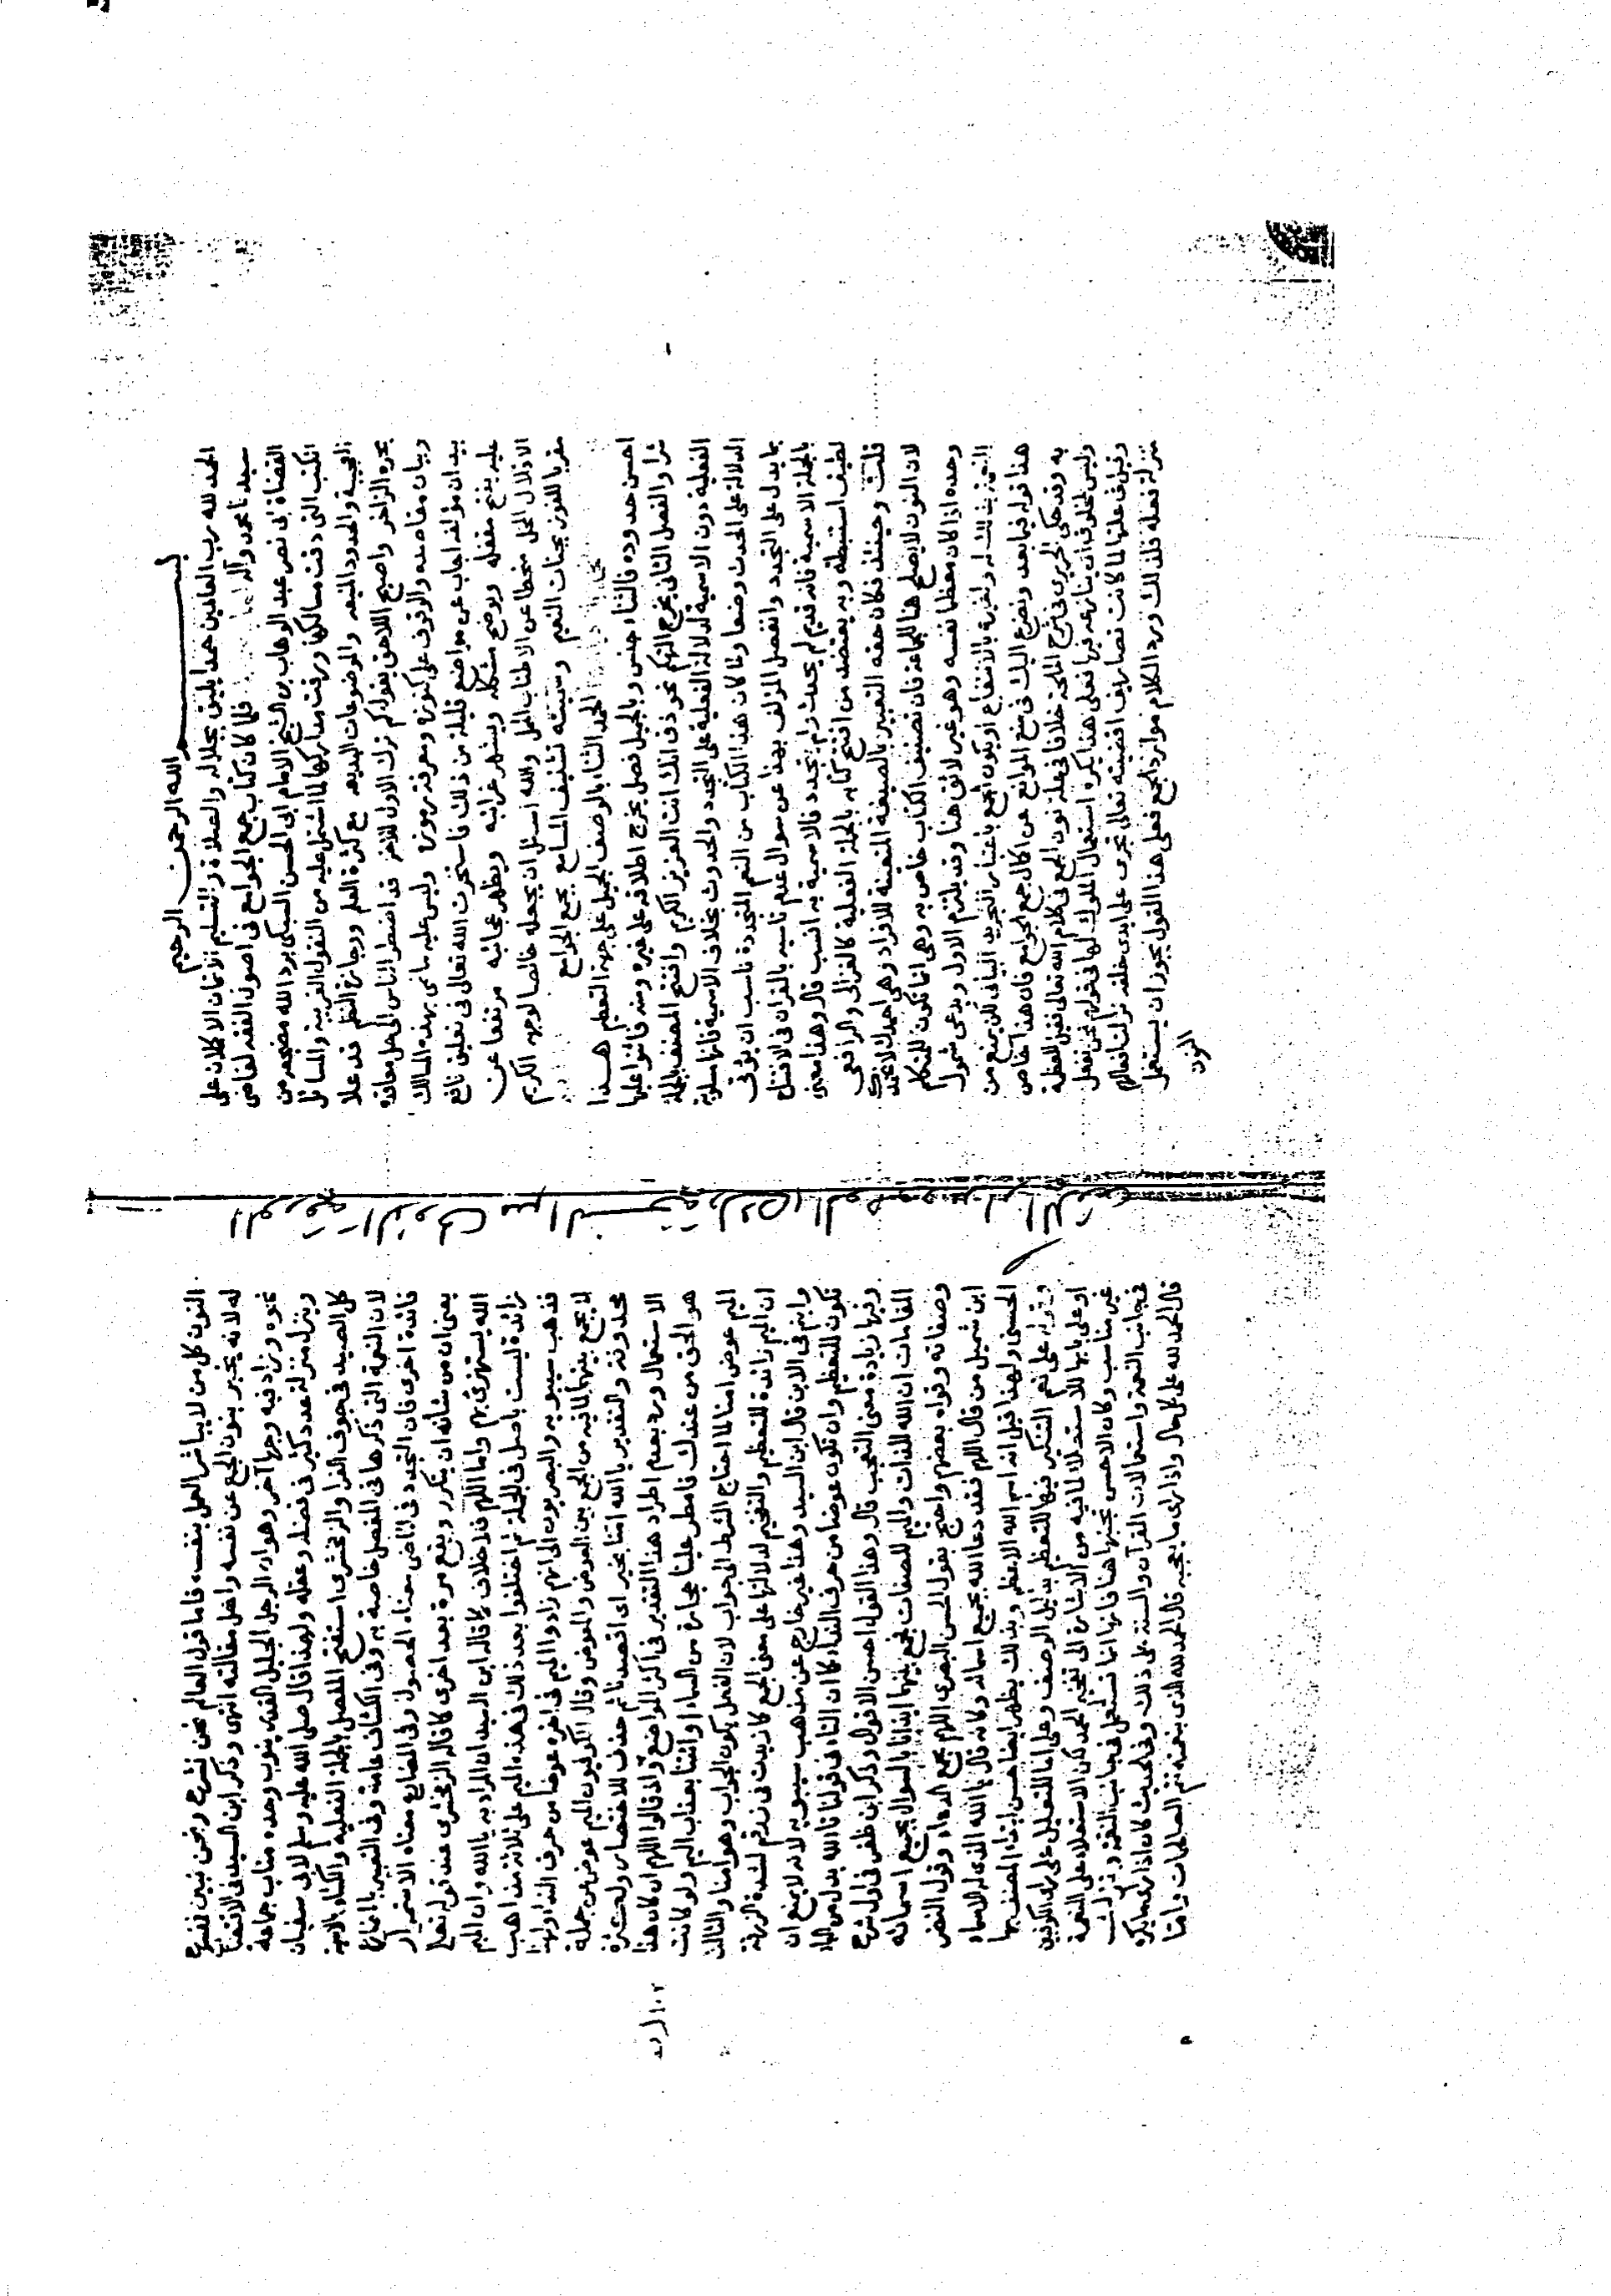 بسم الله الرحمن الرحيم
الحمد لله رب العالمين حمدا يليق بجلاله والصلاة والتسليم الاتمان الاكملان على
سيدنا محمد وآله فلما كان كتاب جمع الجوامع فى اصول الفقه لقاضى
القضاة ابى نصر عبد الوهاب بن الشيخ الامام ابى الحسن السبكى برد الله مضجعه من
الكتب التى دقت مسالكها ورقت مداركها لما اشتمل عليه من النقول الغريبة والمسائل
العجيبة والحدود المنيعه والموضوعات البديعه مع كثرة العلم ووجازة النظم قد علا
بحره الزاخر واصبح اللاحق يقول كم ترك الاول للآخر قد اضطر الناس الى حل معاقده
وبيان مقاصده والوقوف على كنوزه ومعرفة رموزه وليس عليه مانى بهذه المسالك
بيد ان مؤلفه اجاب عن مواضع قليلة من ذلك فاستخرت الله تعالى فى تعليق نافع
عليه يفتح مقفله ويوضح مشكله ويشهر غرائبه ويظهر عجائبه مرتفعا عن
الاقلال المخل منحطا عن الاطناب الممل والله اسئل ان يجعله خالصا لوجهه الكريم
مقربا للفوز بجنات النعيم وسميته تشنيف المسامع بجمع الجوامع
الحمد الثناء بالوصف الجميل على جهة التعظيم هذا
احسن حدوده فالثناء جنس وبالجميل فصل يخرج اطلاقه على غيره ومنه فاثنوا عليها
شرا والفصل الثانى يخرج التهكم نحو ذق انك انت العزيز الكريم وافتتح المصنف بالجملة
الفعلية دون الاسمية لدلالة الفعلية على التجدد والحدوث بخلاف الاسمية فانها مسلوبة
الدلالة على الحدث وضعا ولما كان هذا الكتاب من النعم المتجددة ناسب ان يؤتى
بما يدل على التجدد وانفصل المؤلف بهذا عن سوال عدم تاسيه بالقران فى الافتتاح
بالجملة الاسمية فانه قديم لم يحدث ولم يتجدد فالاسمية به انسب قال وهذا معنى
لطيف استنبطته وبه يعتضد من افتتح كتابه بالجملة الفعلية كالغزالى والرافعى
قلت وحينئذ فكان حقه التعبير بالصيغة المتعينة للافراد وهى احمدك لا نحمدك
لان النون لا يصلح هنا للجماعة فان تصنيف الكتاب خاص به وهى انما تكون للمتكلم
وحده اذا كان معظما نفسه وهو غير لائق هنا وقد يلتزم الاول ويدعى شمول
النعم بذلك له ولغيره بالانتفاع او يكون الجمع باعتبار التجريد البيانى لكن يمنع من
هذا قوله فيما بعد ونضرع اليك فى منع الموانع عن اكمال جمع الجوامع فان هذا خاص
به وقد حكى الحريرى فى شرح الملحة خلافا فى علة نون الجمع فى كلام الله تعالى فقيل للعظمة
وليس لمخلوق ان ينازعه فيها فعلى هذا يكره استعمال الملوك لها فى قولهم نحن نفعل
وقيل فى علتها لما كانت تصاريف اقضيته تعالى تجرى على ايدى خلقه نزلت افعالهم
منزلة فعله فلذلك ورد الكلام موارد الجمع فعلى هذا القول يجوز ان يستعمل
النون
النون كل من لا يباشر العمل بنفسه فاما قول العالم نحن نشرح ونحن نبين فمفسوح
له لانه يخبر بنون الجمع عن نفسه واهل مقالته انتهى وذكر ابن السيد فى الاقتضاب
نحوه وزاد فيه وجها آخر وهو ان الرجل الجليل القدر ينوب وحده مناب جماعة
وينزل منزلة عدد كثير فى فضله وعقله ولهذا قال صلى الله عليه وسلم لابى سفيان
كل الصيد فى جوف الفرا والزمخشرى استفتح المفصل بالجملة الفعلية والكشاف بالاسمية
لان النعمة التى ذكرها فى المفصل خاصة به وفى الكشاف عامة وفى التعبير بالمضارع
فائدة اخرى فان التجدد فى الماضى معناه الحصول وفى المضارع معناه الاستمرار
بمعنى ان من شأنه ان يتكرر ويقع مرة بعد اخرى كما قاله الزمخشرى عند قوله تعالى
الله يستهزئ بهم واما اللهم فلا خلاف كما قاله ابن السيد ان المراد به يا الله وان الميم
زائدة ليست باصل فى الجملة ثم اختلفوا بعد ذلك فى هذه الميم على ثلاثة مذاهب
فذهب سيبويه والبصريون الى انهم زادوا الميم فى آخره عوضا من حرف النداء ولهذا
لا يجمع بينهما لما فيه من الجمع بين العوض والمعوض وقال الكوفيون الميم عوض من جملة
محذوفة والتقدير يا الله امنا بخير اى اقصدنا ثم حذف للاختصار ولكثرة
الاستعمال ورد بعدم اطراد هذا التقدير فى اكثر المواضع واذ قالوا اللهم ان كان هذا
هو الحق من عندك فامطر علينا حجارة من السماء او ائتنا بعذاب اليم ولو كانت
الميم عوض امنا لما احتاج الشرط الى جواب لان الفعل يكون الجواب وهو امنا والثالث
ان الميم زائدة للتعظيم والتفخيم لدلالتها على معنى الجمع كما زيدت فى زرقم لشدة الزرقة
وابنم فى الابن قال ابن السيد وهذا غير خارج عن مذهب سيبويه لانه لا يمنع ان
تكون للتعظيم وان تكون عوضا من حرف النداء كما ان التاء فى قولنا تالله بدل من الباء
وفيها زيادة معنى التعجب قال وهذا القول احسن الاقوال وذكر ابن ظفر فى اول شرح
المقامات ان الله للذات والميم للصفات فجمع بينهما ايذانا بالسوال بجميع اسمائه
وصفاته وقواه بعضهم واحتج بقول الحسن البصرى اللهم مجمع الدعاء وقول النضر
ابن شميل من قال اللهم فقد دعا الله بجميع اسمائه وكانه قال يا الله الذى له الاسماء
الحسنى ولهذا قيل انه اسم الله الاعظم وبذلك يظهر ايضا حسن ابتداء المصنف بها
وقوله على نعم التنكير فيها للتعظيم بدليل الوصف وعلى اما للتعليل على راى الكوفيين
او على بابها للاستعلاء لما فيه من الاشارة الى تفخيم الحمد لكن الاستعلاء على النعمة
غير مناسب وكان الاحسن تجنبها هنا فانها انما تستعمل فى جانب النقمة وتركت
فى جانب النعمة واستعمالات القرآن والسنة على ذلك وفى الحديث كان اذا راى ما يكره
قال الحمد لله على كل حال واذا راى ما يعجبه قال الحمد لله الذى بنعمته تتم الصالحات واما